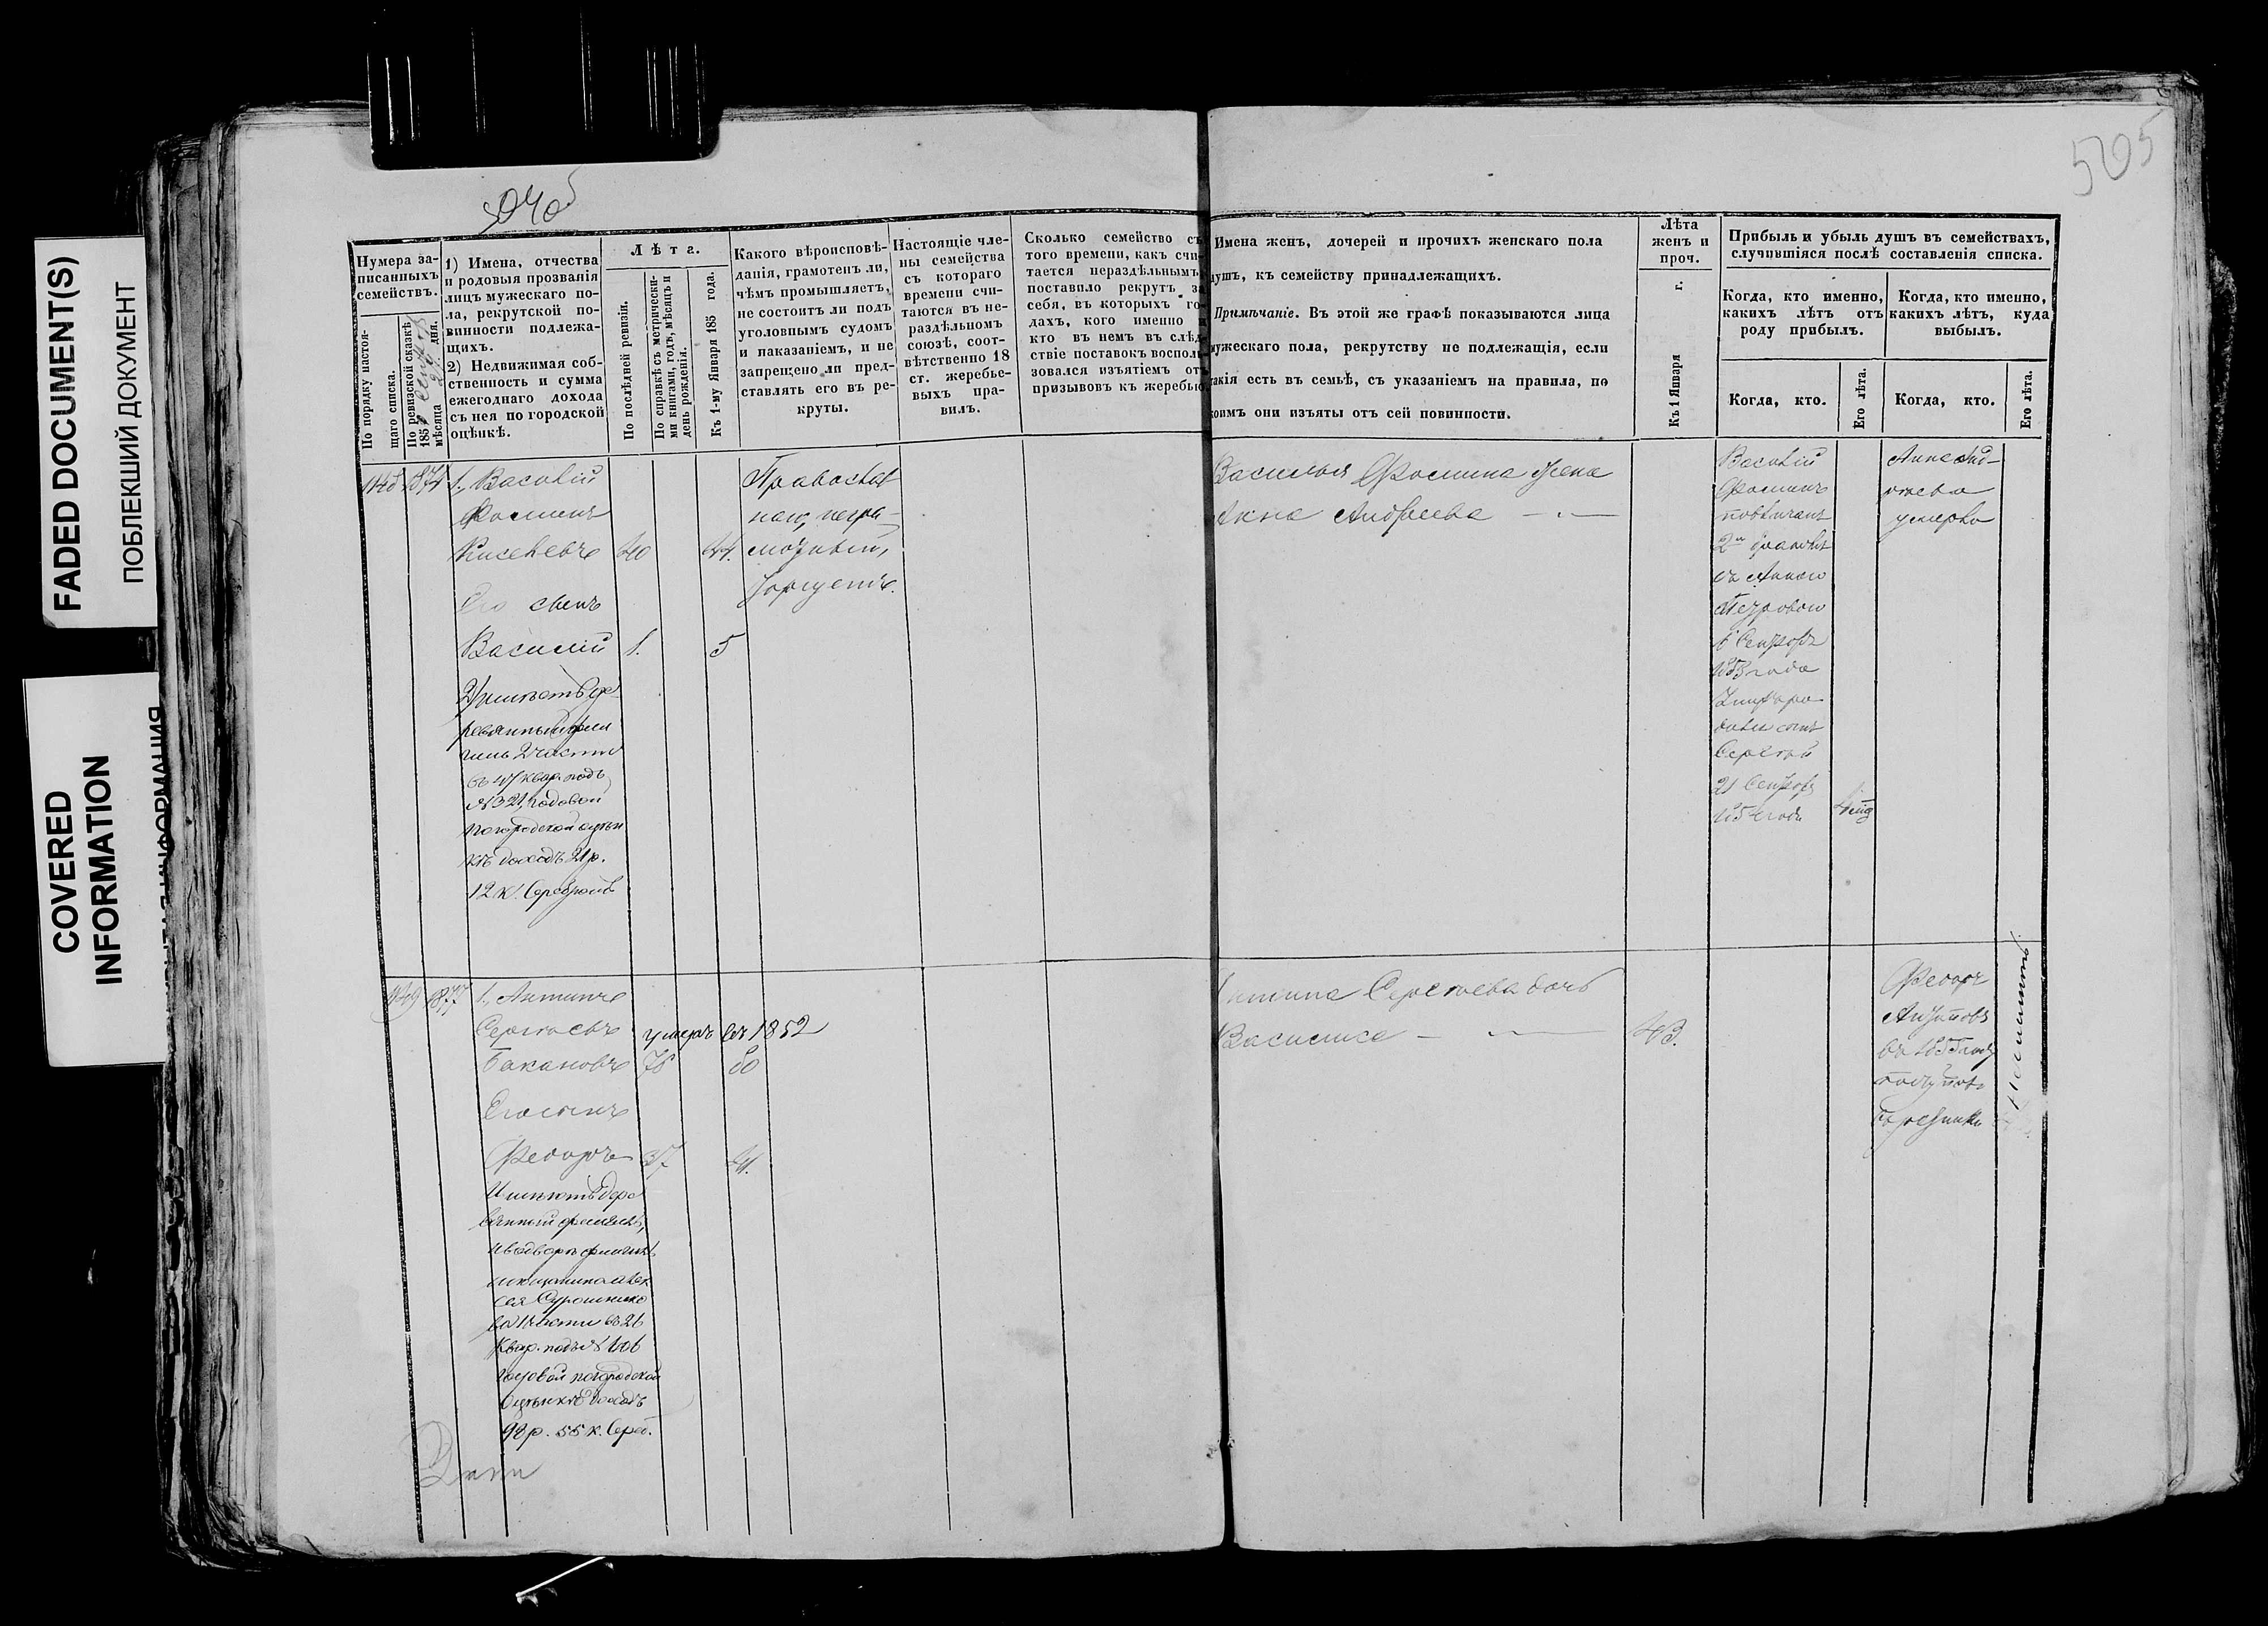 FADED DOCUMENT(S)
ПОБЛЕКШИЙ ДОКУМЕНТ
COVERED
INFORMATION
505
Нумера за-
писанныхъ
семействъ.
По порядку настоя-
щаго списка.
По ревизской сказкѣ
185 мѣсяца дня.
1) Имена, отчества
и родовыя прозванія
лицъ мужескаго по-
ла, рекрутской по-
винности подлежа-
щихъ.
2) Недвижимая соб-
ственность и сумма
ежегоднаго дохода
съ нея по городской
оцѣнкѣ.
Лѣта.
По послѣдней ревизіи.
По справкѣ съ метрически-
ми книгами, годъ, мѣсяцъ и
день рожденія.
Къ 1-му Января 185 года.
Какого вѣроисповѣ-
данія, грамотенъ ли,
чѣмъ промышляетъ,
не состоитъ ли подъ
уголовнымъ судомъ
и наказаніемъ, и не
запрещено ли пред-
ставлять его въ ре-
круты.
Настоящіе чле-
ны семейства
съ котораго
времени счи-
таются въ не-
раздѣльномъ
союзѣ, соот-
вѣтственно 18
ст. жеребье-
выхъ пра-
вилъ.
Сколько семейство съ
того времени, какъ счи-
тается нераздѣльнымъ
поставило рекрутъ за
себя, въ которыхъ го-
дахъ, кого именно и
кто въ немъ въ слѣд-
ствіе поставокъ восполь
зовался изъятіемъ отъ
призывовъ къ жеребью
Имена женъ, дочерей и прочихъ женскаго пола
душъ, къ семейству принадлежащихъ.
Примѣчаніе. Въ этой же графѣ показываются лица
мужескаго пола, рекрутству не подлежащія, если
такія есть въ семьѣ, съ указаніемъ на правила, по
коимъ они изъяты отъ сей повинности.
Лѣта
женъ и
проч.
Къ 1 Января г.
Прибыль и убыль душъ въ семействахъ,
случившіяся послѣ составленія списка.
Когда, кто именно,
какихъ лѣтъ отъ
роду прибылъ.
Когда, кто именно,
какихъ лѣтъ, куда
выбылъ.
Когда, кто.
Его лѣта.
Когда, кто.
Его лѣта.
1874
1., Василій
Фоминъ
Киселевъ 40 44.
Его сынъ
Василий 1. 5
2) имѣетъ де
ревянный фли
гиль 2 части
въ 47 квар. подъ
№ 321, годовой
по городской оцѣн
кѣ доходъ 21 р.
12 к. Серебромъ
Православ
наго, негра-
мотный,
торгуетъ.
Василья Фомина жена
Анна Андреева
Василій
Фоминъ
повѣнчанъ
2м бракомъ
съ Анною
Петровою
6 Сентября
1853 года
У них ро
дился сынъ
Сергѣй
21 Сентября
1854 года
Анна Анд-
реева
умерла
1877
1., Антипъ
Сергѣевъ умеръ въ 1852
Бакановъ 76 80
Его сынъ
Федоръ 37 41.
Имѣютъ дере
вянный флигель,
и во дворѣ флигель
мещанина Алек
сея Сурошнико
ва 1 части въ 26
квар. подъ № 406
годовой по городской
оцѣнкѣ доходъ
98 р. 55 к. Сереб.
Антипа Сергѣева дочь
Василиса 43.
Федоръ
Антиповъ
въ 1855 году
поступилъ